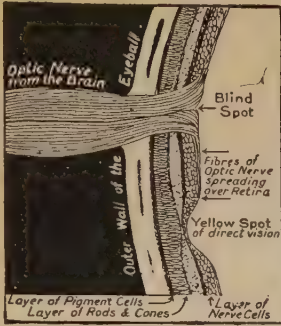 Optic Nerve
from the Brain
Eyeball
Outer Wall of the
Blind
Spot
Fibres of
Optic Nerve
spreading
over Retira
Yellow Spot
of direct vision
Layer of Pigment Cells
Layer of Rods & Cones
Layer of
Nerve Cells